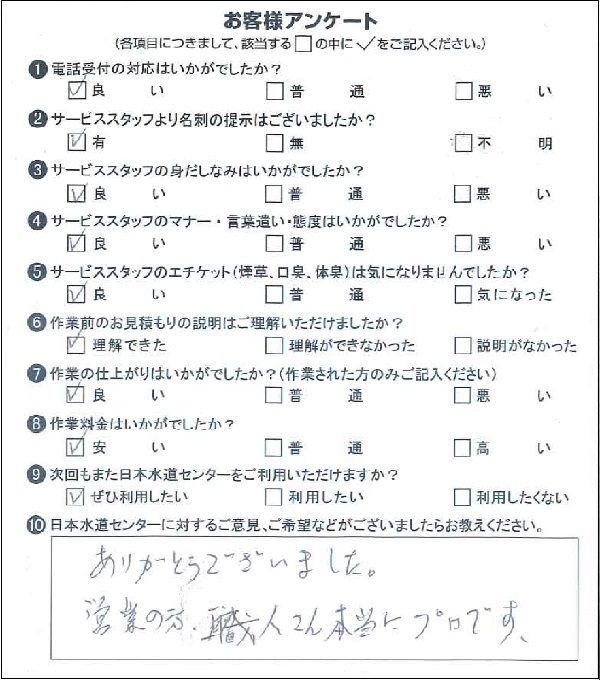 お客様アンケート
(各項目につきまして、該当する□の中に✓をご記入ください。)
❶電話受付の対応はいかがでしたか？
☑良い □普通 □悪い
❷サービススタッフより名刺の提示はございましたか？
☑有 □無 □不明
❸サービススタッフの身だしなみはいかがでしたか？
☑良い □普通 □悪い
❹サービススタッフのマナー・言葉遣い・態度はいかがでしたか？
☑良い □普通 □悪い
❺サービススタッフのエチケット(煙草、口臭、体臭)は気になりませんでしたか？
☑良い □普通 □気になった
❻作業前のお見積もりの説明はご理解いただけましたか？
☑理解できた □理解ができなかった □説明がなかった
❼作業の仕上がりはいかがでしたか？(作業された方のみご記入ください)
☑良い □普通 □悪い
❽作業料金はいかがでしたか？
☑安い □普通 □高い
❾次回もまた日本水道センターをご利用いただけますか？
☑ぜひ利用したい □利用したい □利用したくない
❿日本水道センターに対するご意見、ご希望などがございましたらお教えください。
ありがとうございました。
営業の方、職人さん本当にプロです、